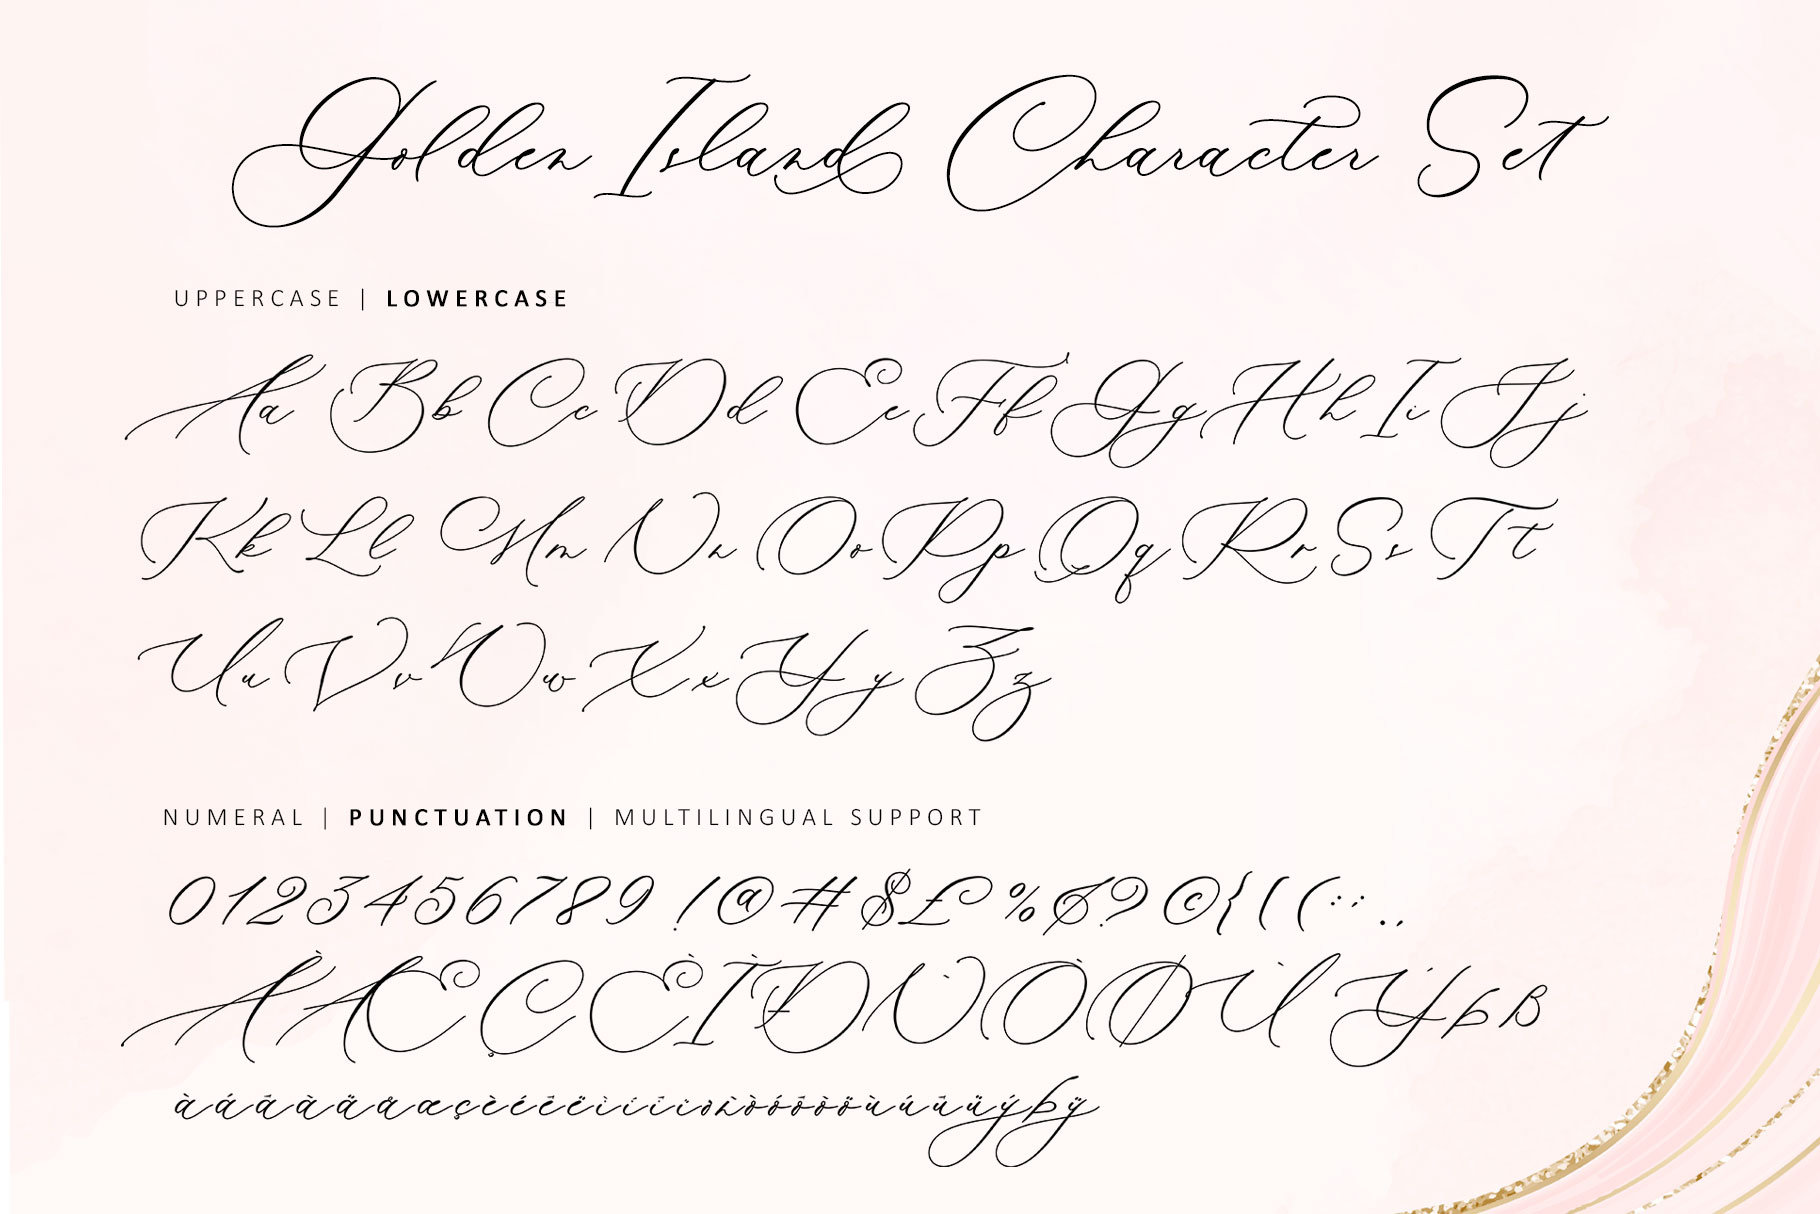 Golden Island Character Set
UPPERCASE | LOWERCASE
Aa Bb Cc Dd Ee Ff Gg Hh Ii Jj
Kk Ll Mm Nn Oo Pp Qq Rr Ss Tt
Uu Vv Ww Xx Yy Zz
NUMERAL | PUNCTUATION | MULTILINGUAL SUPPORT
0123456789 !@#$£%
À Æ Ç È Ì Ð Ò Ø